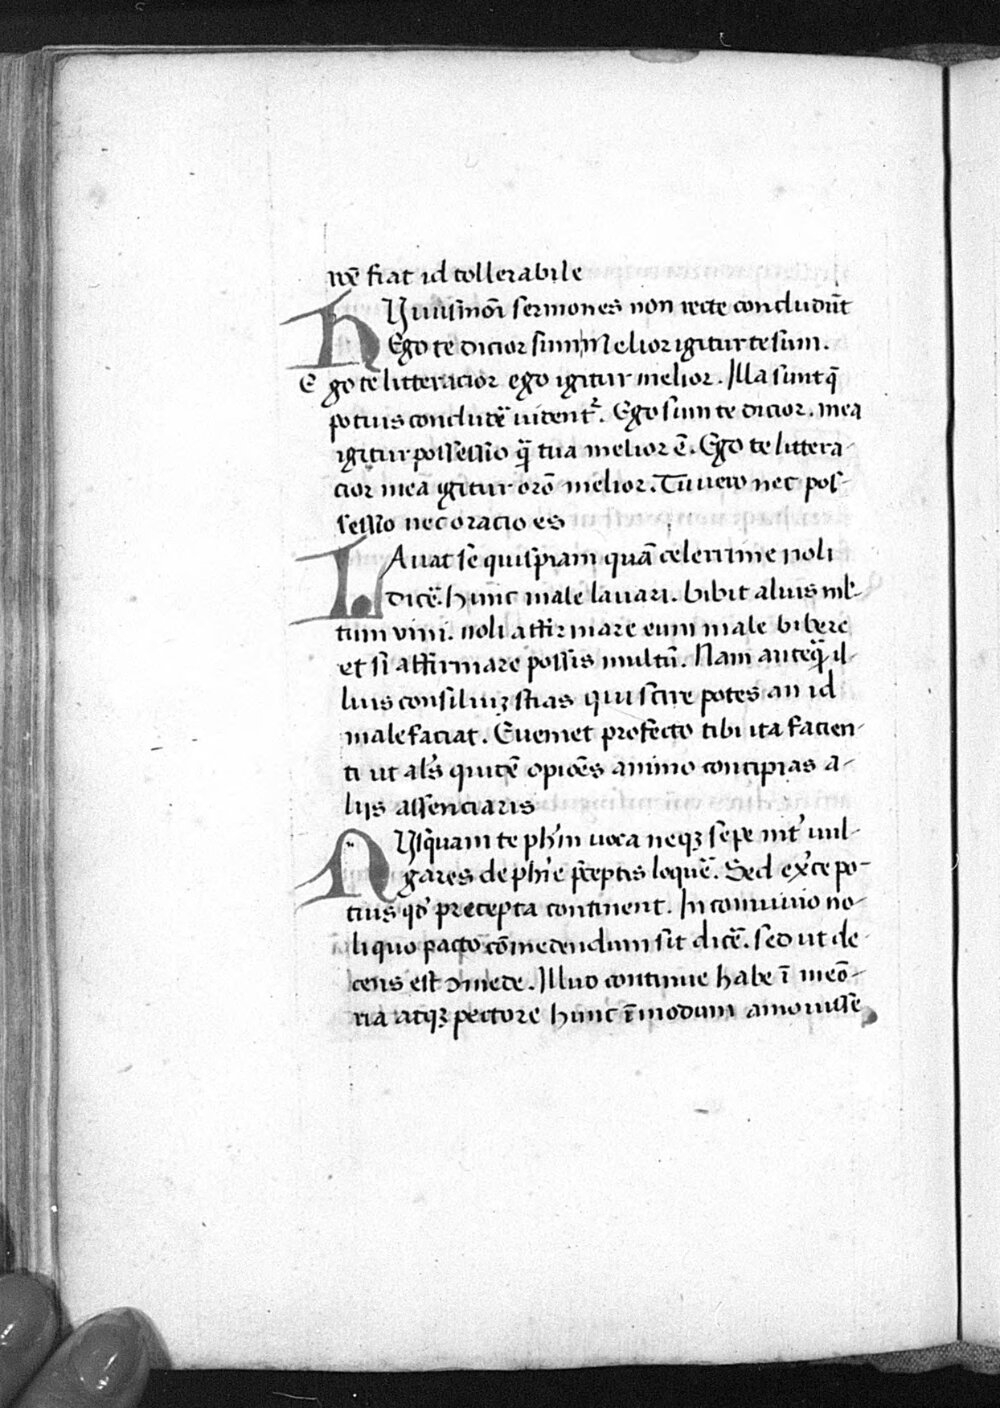 rẽ fiat id tollerabile
HViusmõi sermones non recte concludũt
Ego te dicior sum Melior igitur te sum.
Ego te litteracior ego igitur melior. Illa sunt q̃
potius concludẽ videntᷣ. Ego sum te dicior. mea
igitur possessio q̃ tua melior ẽ. Ego te littera-
cior mea igitur orõ melior. Tu vero nec pos-
sessio nec oracio es
LAuat se quispiam quã celerrime noli
dicẽ. hunc male lauari. bibit aluis ml̃-
tum vini. noli affirmare eum male bibere
et si affirmare possis multũ. Nam anteq̃ il-
lius consiliuꝫ scias qui scire potes an id
male faciat. Eueniet profecto tibi ita facien-
ti ut al's quidẽ opiões animo concipias a-
liis assenciaris
NVsquam te ph'm uoca neqꝫ sepe int' uul-
gares de ph'ie p̃ceptis loquẽ. Sed ex'ce po-
tius qđ precepta continent. In conuiuio no-
li quo pacto cõmedendum sit dicẽ. sed ut de-
cens est ꝯmede. Illud continue habe ĩ meõ-
ria atqꝫ pectore hunc ĩ modum amouisse